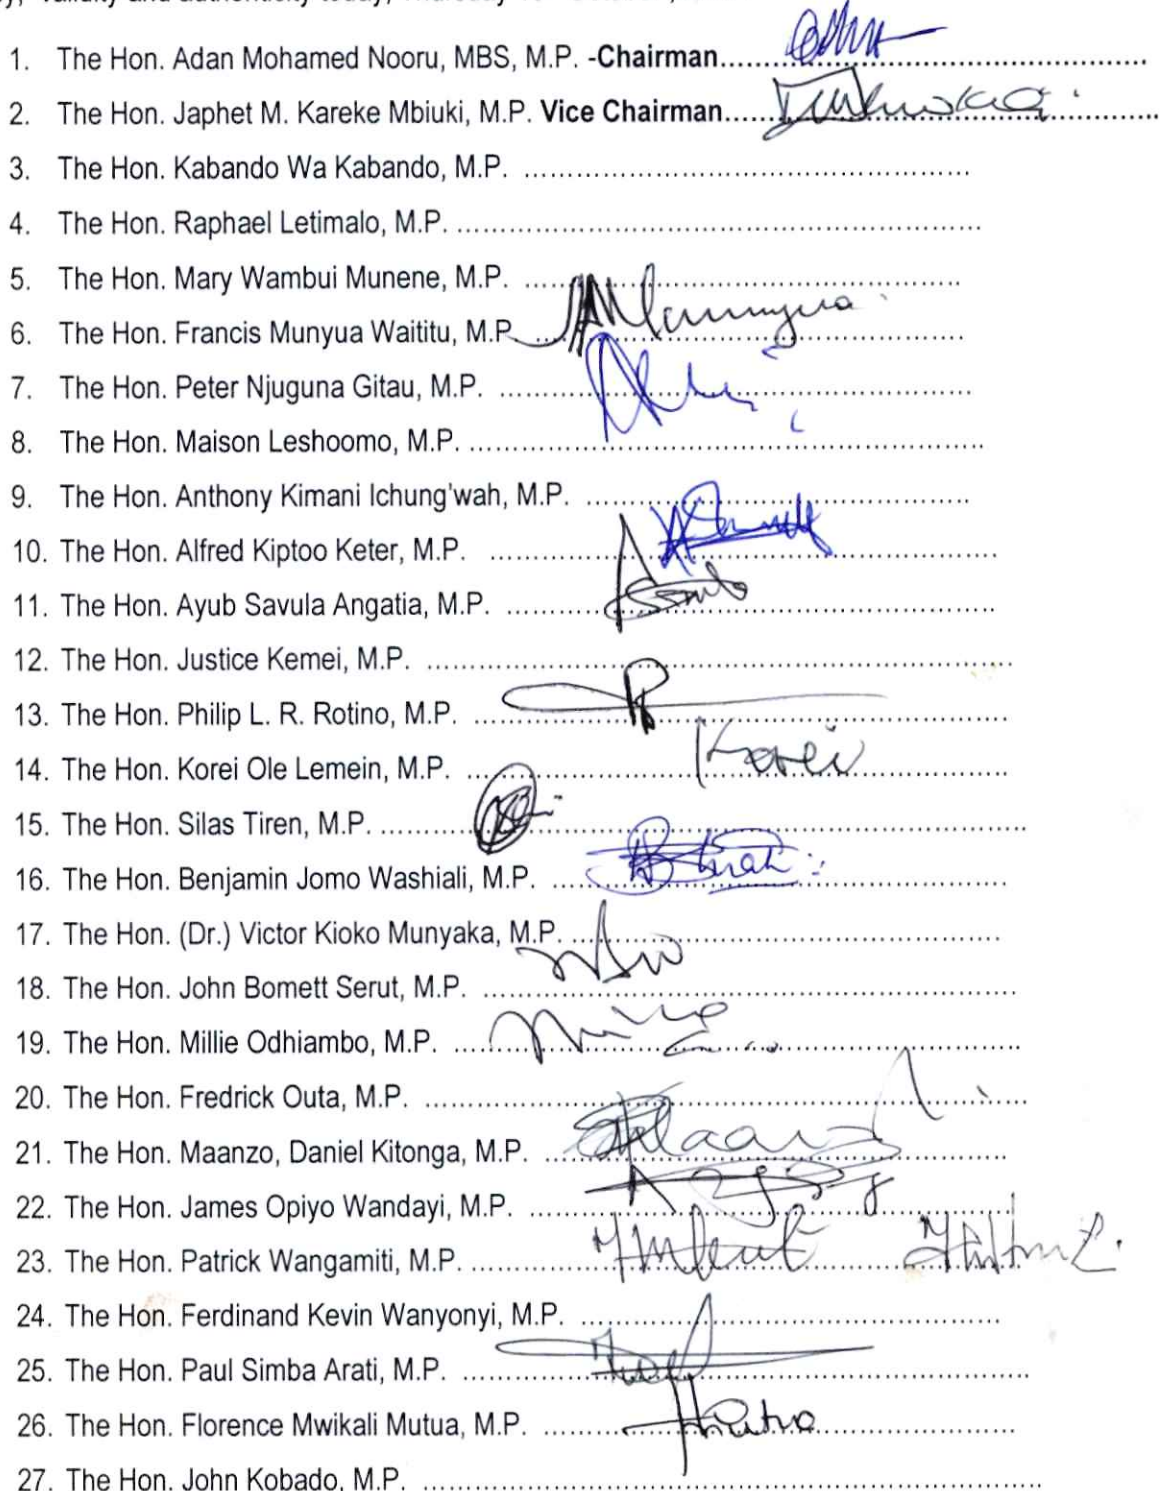 validity and authenticity today,
1. The Hon. Adan Mohamed Nooru, MBS, M.P. -Chairman
2. The Hon. Japhet M. Kareke Mbiuki, M.P. Vice Chairman
3. The Hon. Kabando Wa Kabando, M.P.
4. The Hon. Raphael Letimalo, M.P.
5. The Hon. Mary Wambui Munene, M.P.
6. The Hon. Francis Munyua Waititu, M.P. Munyua
7. The Hon. Peter Njuguna Gitau, M.P.
8. The Hon. Maison Leshoomo, M.P.
9. The Hon. Anthony Kimani Ichung'wah, M.P.
10. The Hon. Alfred Kiptoo Keter, M.P.
11. The Hon. Ayub Savula Angatia, M.P.
12. The Hon. Justice Kemei, M.P.
13. The Hon. Philip L. R. Rotino, M.P.
14. The Hon. Korei Ole Lemein, M.P. Korei
15. The Hon. Silas Tiren, M.P.
16. The Hon. Benjamin Jomo Washiali, M.P.
17. The Hon. (Dr.) Victor Kioko Munyaka, M.P.
18. The Hon. John Bomett Serut, M.P.
19. The Hon. Millie Odhiambo, M.P.
20. The Hon. Fredrick Outa, M.P.
21. The Hon. Maanzo, Daniel Kitonga, M.P.
22. The Hon. James Opiyo Wandayi, M.P.
23. The Hon. Patrick Wangamiti, M.P.
24. The Hon. Ferdinand Kevin Wanyonyi, M.P.
25. The Hon. Paul Simba Arati, M.P.
26. The Hon. Florence Mwikali Mutua, M.P.
27. The Hon. John Kobado, M.P.